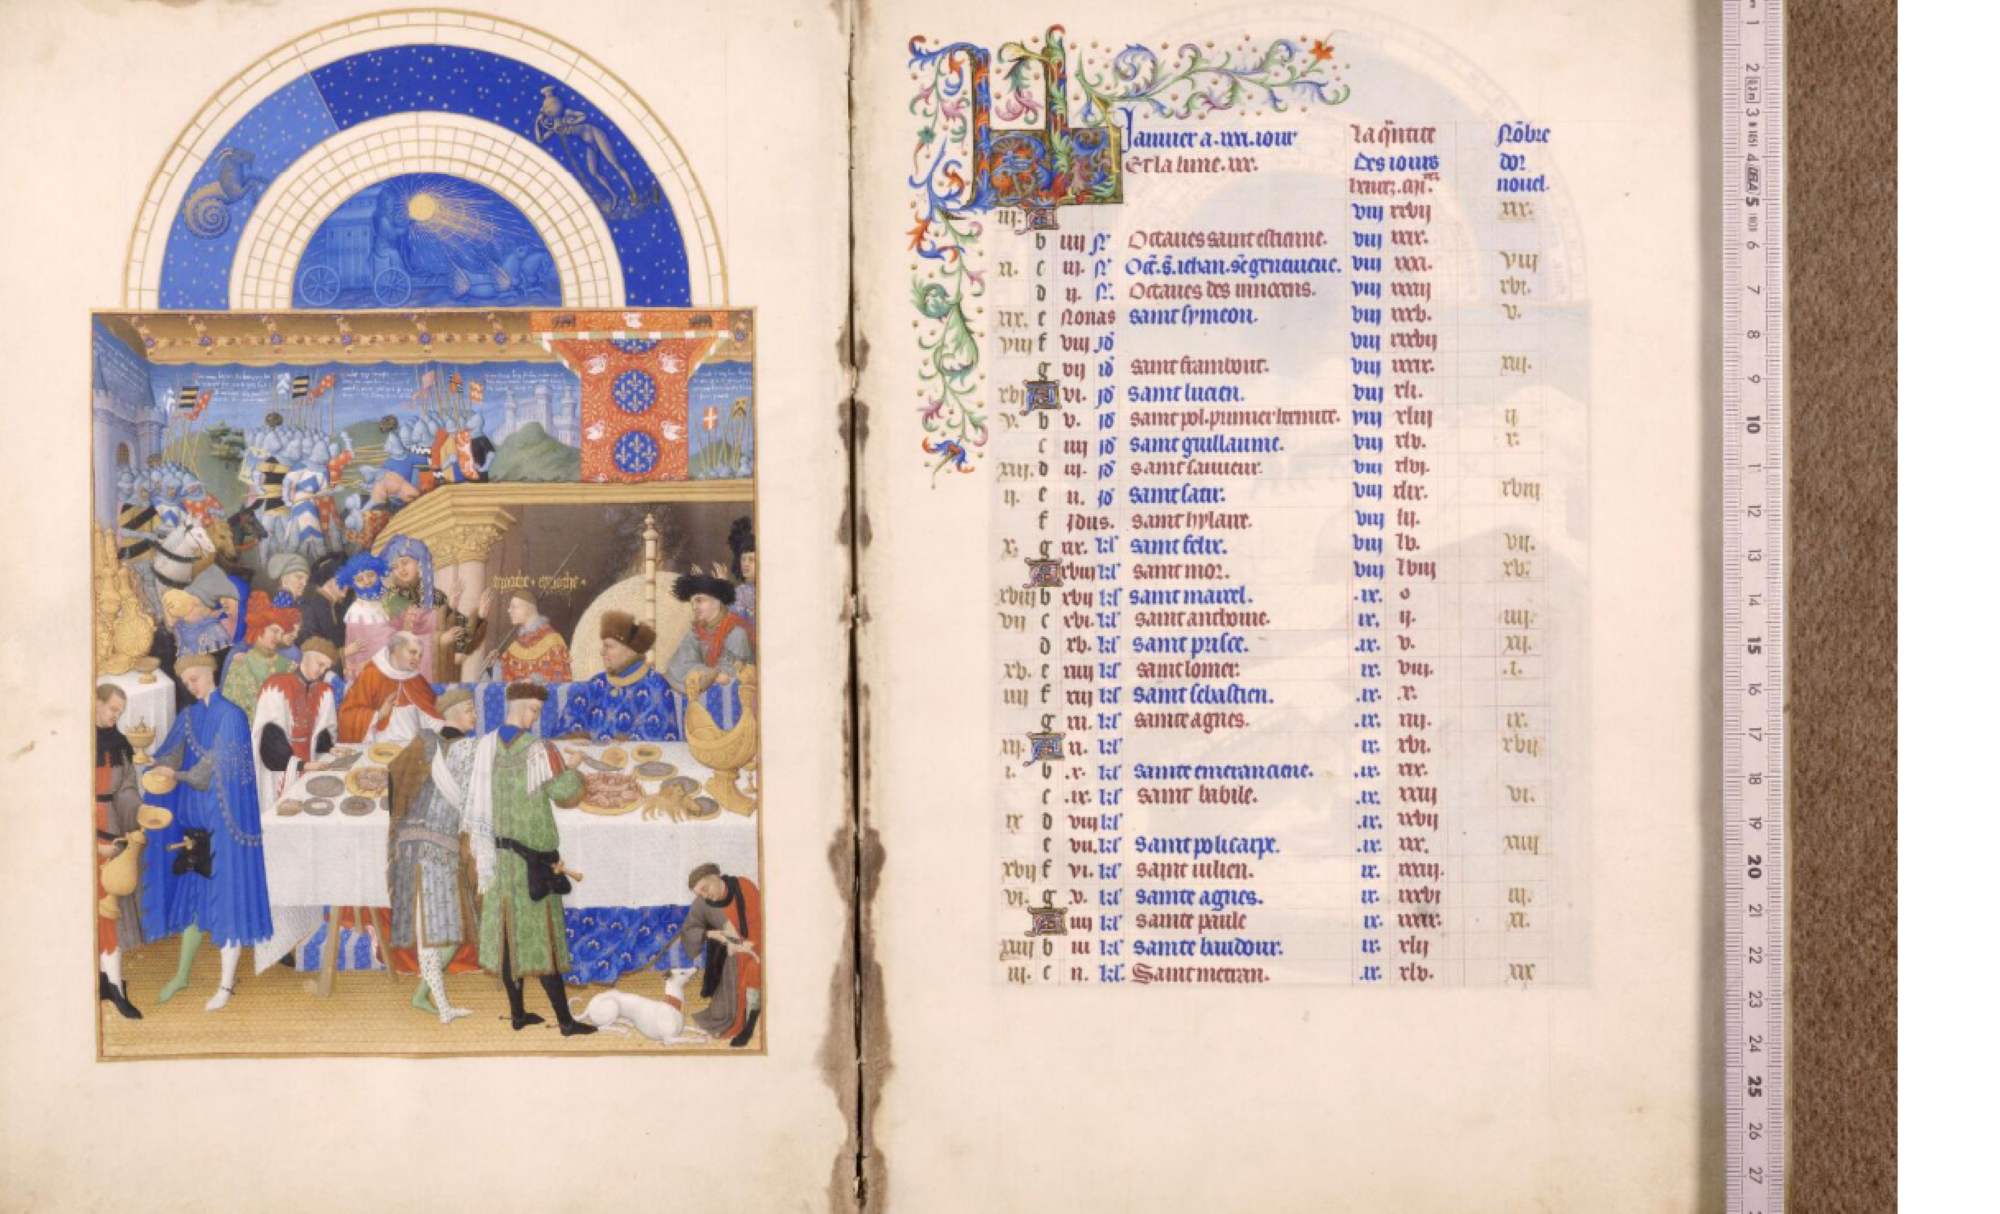 aproche + aproche +
Januier a .xxxi. iour
La q̄ntite
Nōbre
Et la lune .xxx.
des iours
dor
nouel.
iii. A viii xxvii xix.
b iiii N Octaues saint estienne. viii xxix.
xi. c iii. N Oct. s. iehan. sc̄e geneuieue. viii xxxi. viii
d ii. N. Octaues des innocens. viii xxxiii xvi.
xix. e Nonas saint symeon. viii xxxv. v.
viii f viii id viii xxxvii
g vii id saint frambout. viii xxxix. xiii.
xvi A vi. id saint lucien. viii xli.
v. b v. id saint pol. premier hermite. viii xliii ii
c iiii id saint guillaume. viii xlv. x.
xiii. d iii. id saint sauueur. viii xlvi.
ii. e ii. id saint satir. viii xlix. xviii
f Idus. saint hylaire. viii lii.
x. g xix. kl saint felix. viii lv. vii.
A xviii kl saint mor. viii lviii xv.
xviii b xvii kl saint marcel. .ix. o
vii c xvi. kl saint anthoine. ix. ii. iiii.
d xv. kl saint prisce. .ix. v. xii.
xv. e xiiii kl saint lomer. ix. viii. .i.
iiii f xiii kl saint sebastien. .ix. .x.
g xii. kl sainte agnes. .ix. xiii. ix.
xii. A xi. kl ix. xvi. xvii
i. b .x. kl sainte emeranciene. .ix. xix.
c .ix. kl saint babile. .ix. xxiii vi.
ix d viii kl .ix. xxvii
e vii. kl saint policarpe. .ix. xxx. xiiii
xvii f vi. kl saint iulien. ix. xxxiii.
vi. g .v. kl sainte agnes. ix. xxxvi iii.
A iiii kl sainte paule ix. xxxix. xi.
xiiii b iii kl sainte baudour. ix. xlii
iii. c ii. kl. Saint metran. .ix. xlv. xix
1
2
3
4
5
6
7
8
9
10
11
12
13
14
15
16
17
18
19
20
21
22
23
24
25
26
27